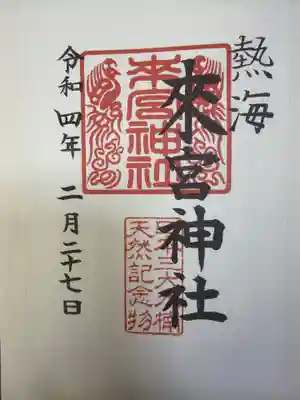 熱海
來宮神社
令和四年 二月二十七日
来宮神社
天然記念物